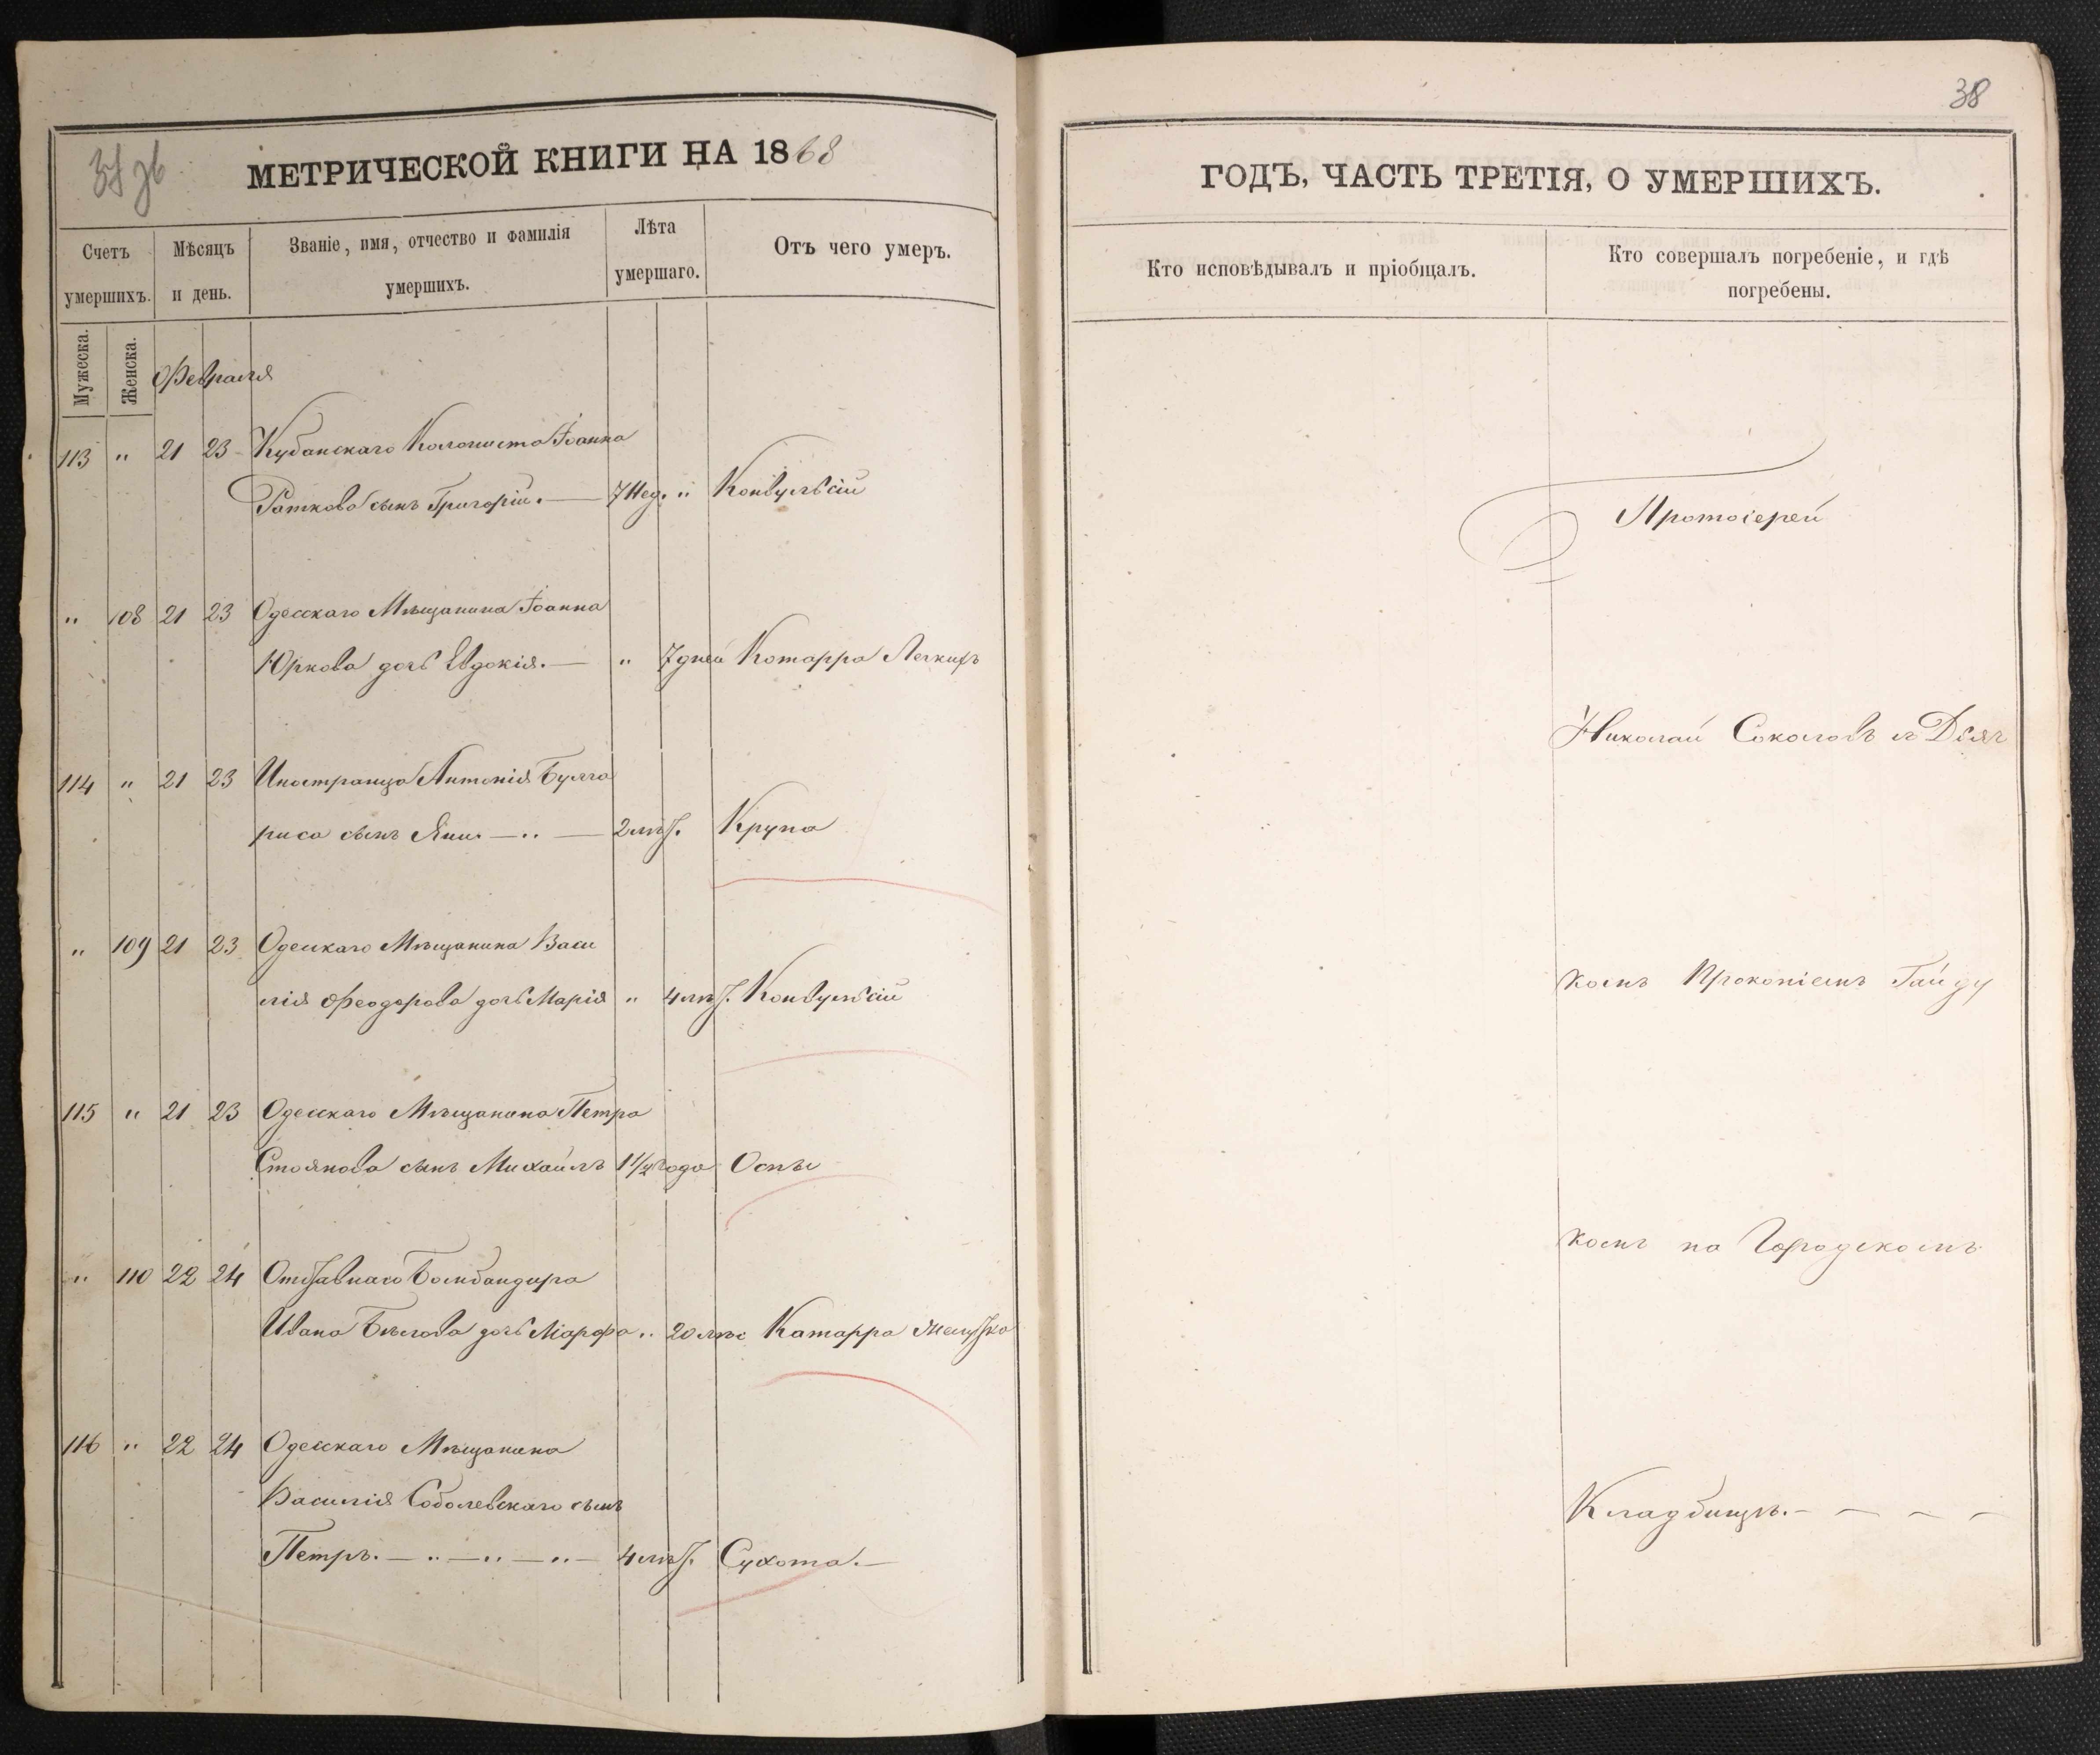 38
МЕТРИЧЕСКОЙ КНИГИ НА 1868
Счетъ умершихъ.
Мѣсяцъ и день.
Званіе, имя, отчество и фамилія умершихъ.
Лѣта умершаго.
Отъ чего умеръ.
Мужеска.
Женска.
Февраля
113 " 21 23 Кубанскаго Колониста Іоанна
Раткова сынъ Григорій. — 7 Нед. " Конвульсій
" 108 21 23 Одесскаго Мѣщанина Іоанна
Юркова дочь Евдокія. — " 7 дней Котарра Легкихъ
114 " 21 23 Иностранца Антонія Булга
риса сынъ Яни. — .. — 2 лѣт. Крупа
" 109 21 23 Одесскаго Мѣщанина Васи
лія Феодорова дочь Марія " 4 лѣт. Конвульсій
115 " 21 23 Одесскаго Мѣщанина Петра
Стоянова сынъ Михаилъ 1 1/2 года Оспы
" 110 22 24 Отставнаго Бомбандира
Ивана Бѣлова дочь Марфа .. 20 мѣс Катарра желутка
116 " 22 24 Одесскаго Мѣщанина
Василія Соболевскаго сынъ
Петръ. — .. — .. — .. — 4 лѣт. Сухота. —
ГОДЪ, ЧАСТЬ ТРЕТІЯ, О УМЕРШИХЪ.
Кто исповѣдывалъ и пріобщалъ.
Кто совершалъ погребеніе, и гдѣ погребены.
Протоіерей
Николай Соколовъ съ Дьяч
комъ Прокопіемъ Гайду
комъ на Городскомъ
Кладбищѣ. — — — —